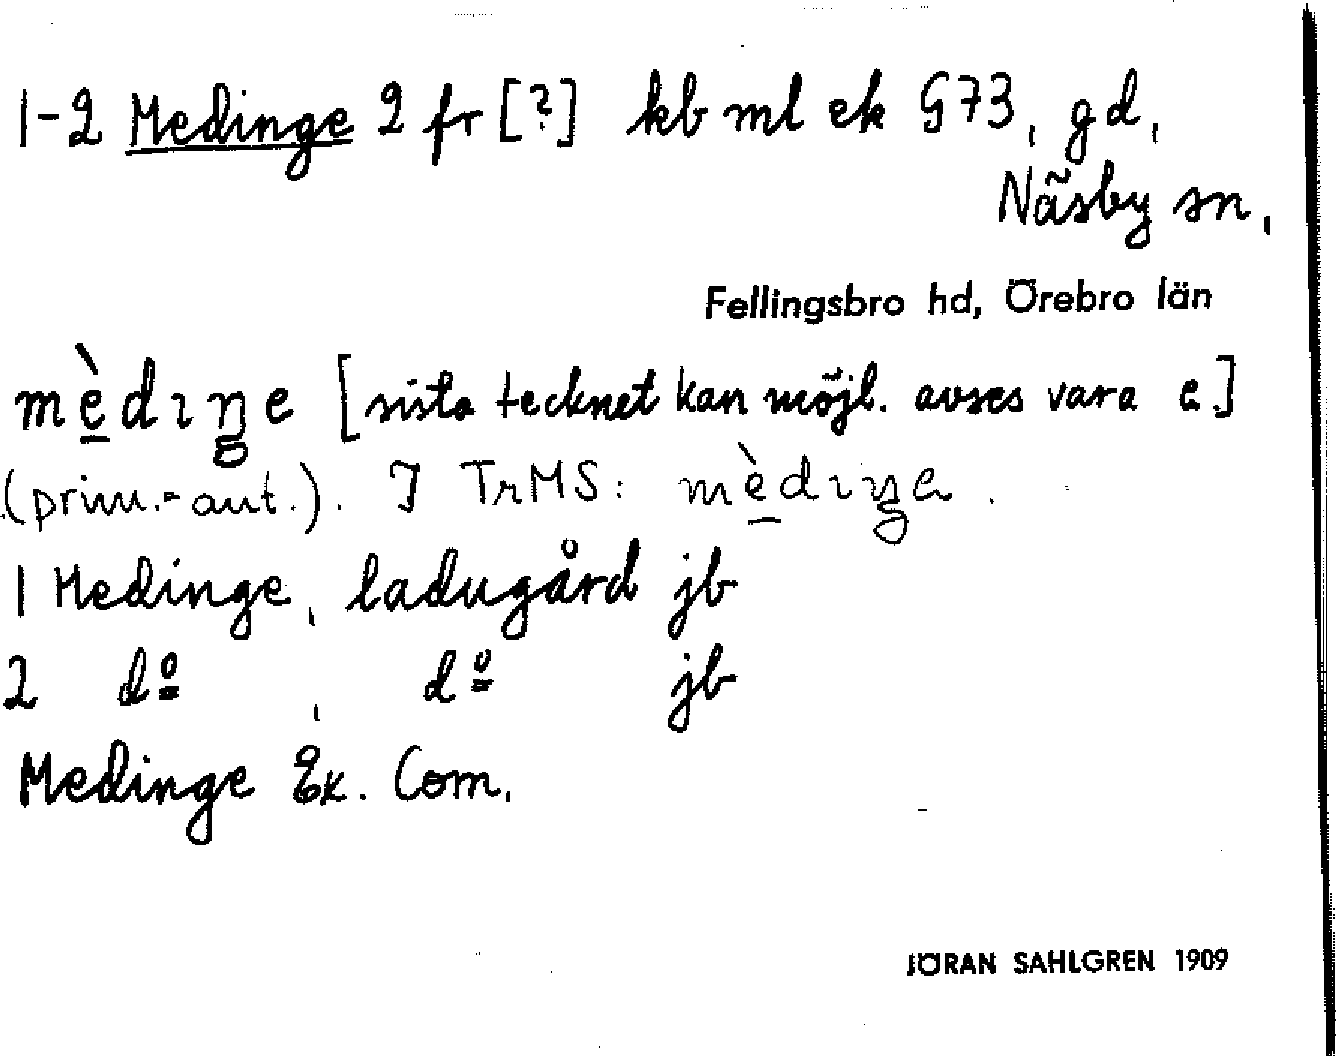 1-2 Medinge 2 fr [?] kb ml ek G73, gd,
Näsby sn,
Fellingsbro hd, Örebro län
mè̱dıŋe [sista tecknet kan möjl. avses vara e.]
(prim.-ant.). I TrMS: mè̱dıŋa.
1 Medinge, ladugård jb
2 dº , dº jb
Medinge Ek. Com.
JÖRAN SAHLGREN 1909